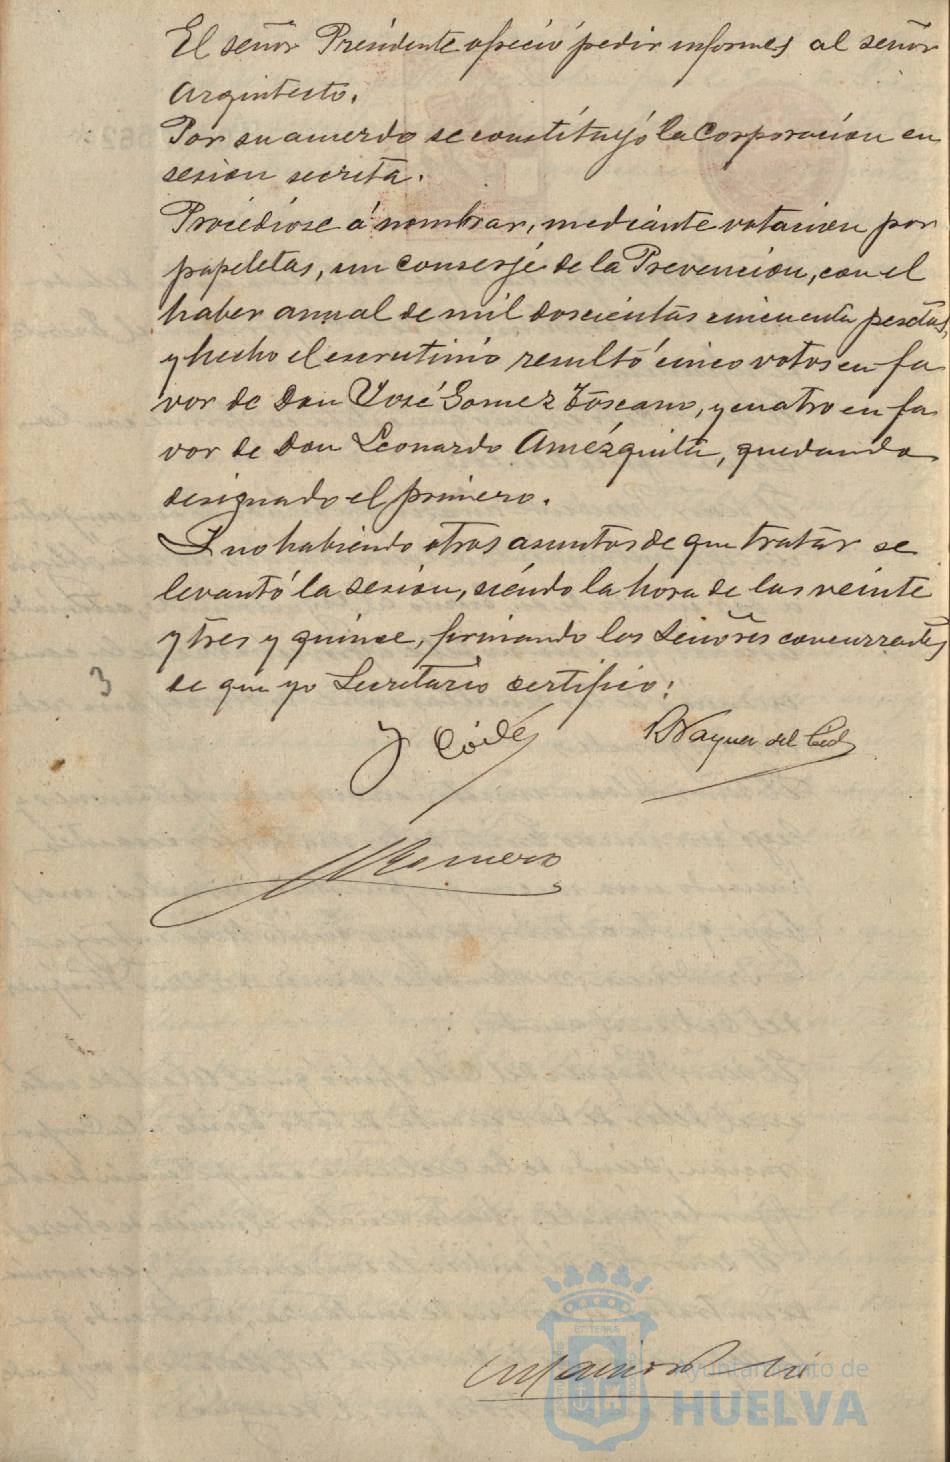 El señor Presidente ofreció pedir informes al señor
Arquitecto.
Por su acuerdo se constituyó la Corporacion en
sesion secreta.
Procedióse á nombrar, mediante votacion por
papeletas, un conserje de la Prevencion, con el
haber anual de mil doscientas cincuenta pesetas,
y hecho el escrutinio resultó cinco votos en fa
vor de Don José Gomez Toscano, y cuatro en fa
vor de Don Leonardo Amézquita, quedando
designado el primero.
Y no habiendo otros asuntos de que tratar se
levantó la sesion, siendo la hora de las veinte
y tres y quince, firmando los Señores concurrentes
de que yo Secretario certifico:
3
J Coto
Vazquez del Cid
Romero
Ayuntamiento de
HUELVA